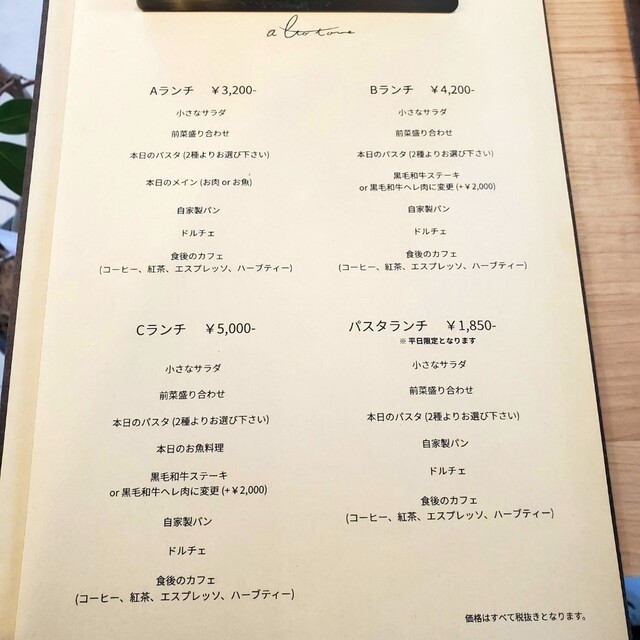 Aランチ ￥3,200-
小さなサラダ
前菜盛り合わせ
本日のパスタ (2種よりお選び下さい)
本日のメイン (お肉 or お魚)
自家製パン
ドルチェ
食後のカフェ
(コーヒー、紅茶、エスプレッソ、ハーブティー)
Bランチ ￥4,200-
小さなサラダ
前菜盛り合わせ
本日のパスタ (2種よりお選び下さい)
黒毛和牛ステーキ
or 黒毛和牛ヘレ肉に変更 (+￥2,000)
自家製パン
ドルチェ
食後のカフェ
(コーヒー、紅茶、エスプレッソ、ハーブティー)
Cランチ ￥5,000-
小さなサラダ
前菜盛り合わせ
本日のパスタ (2種よりお選び下さい)
本日のお魚料理
黒毛和牛ステーキ
or 黒毛和牛ヘレ肉に変更 (+￥2,000)
自家製パン
ドルチェ
食後のカフェ
(コーヒー、紅茶、エスプレッソ、ハーブティー)
パスタランチ ￥1,850-
※ 平日限定となります
小さなサラダ
前菜盛り合わせ
本日のパスタ (2種よりお選び下さい)
自家製パン
ドルチェ
食後のカフェ
(コーヒー、紅茶、エスプレッソ、ハーブティー)
価格はすべて税抜きとなります。